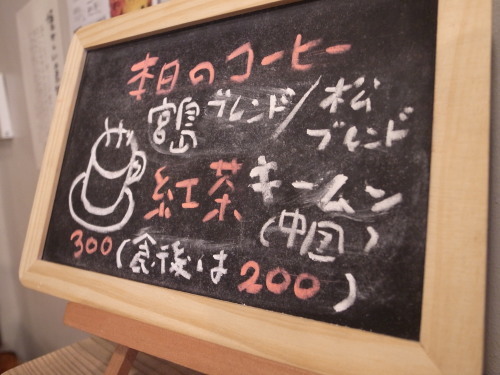 本日のコーヒー
宮島ブレンド/松ブレンド
紅茶キームン
(中国)
300(食後は200)